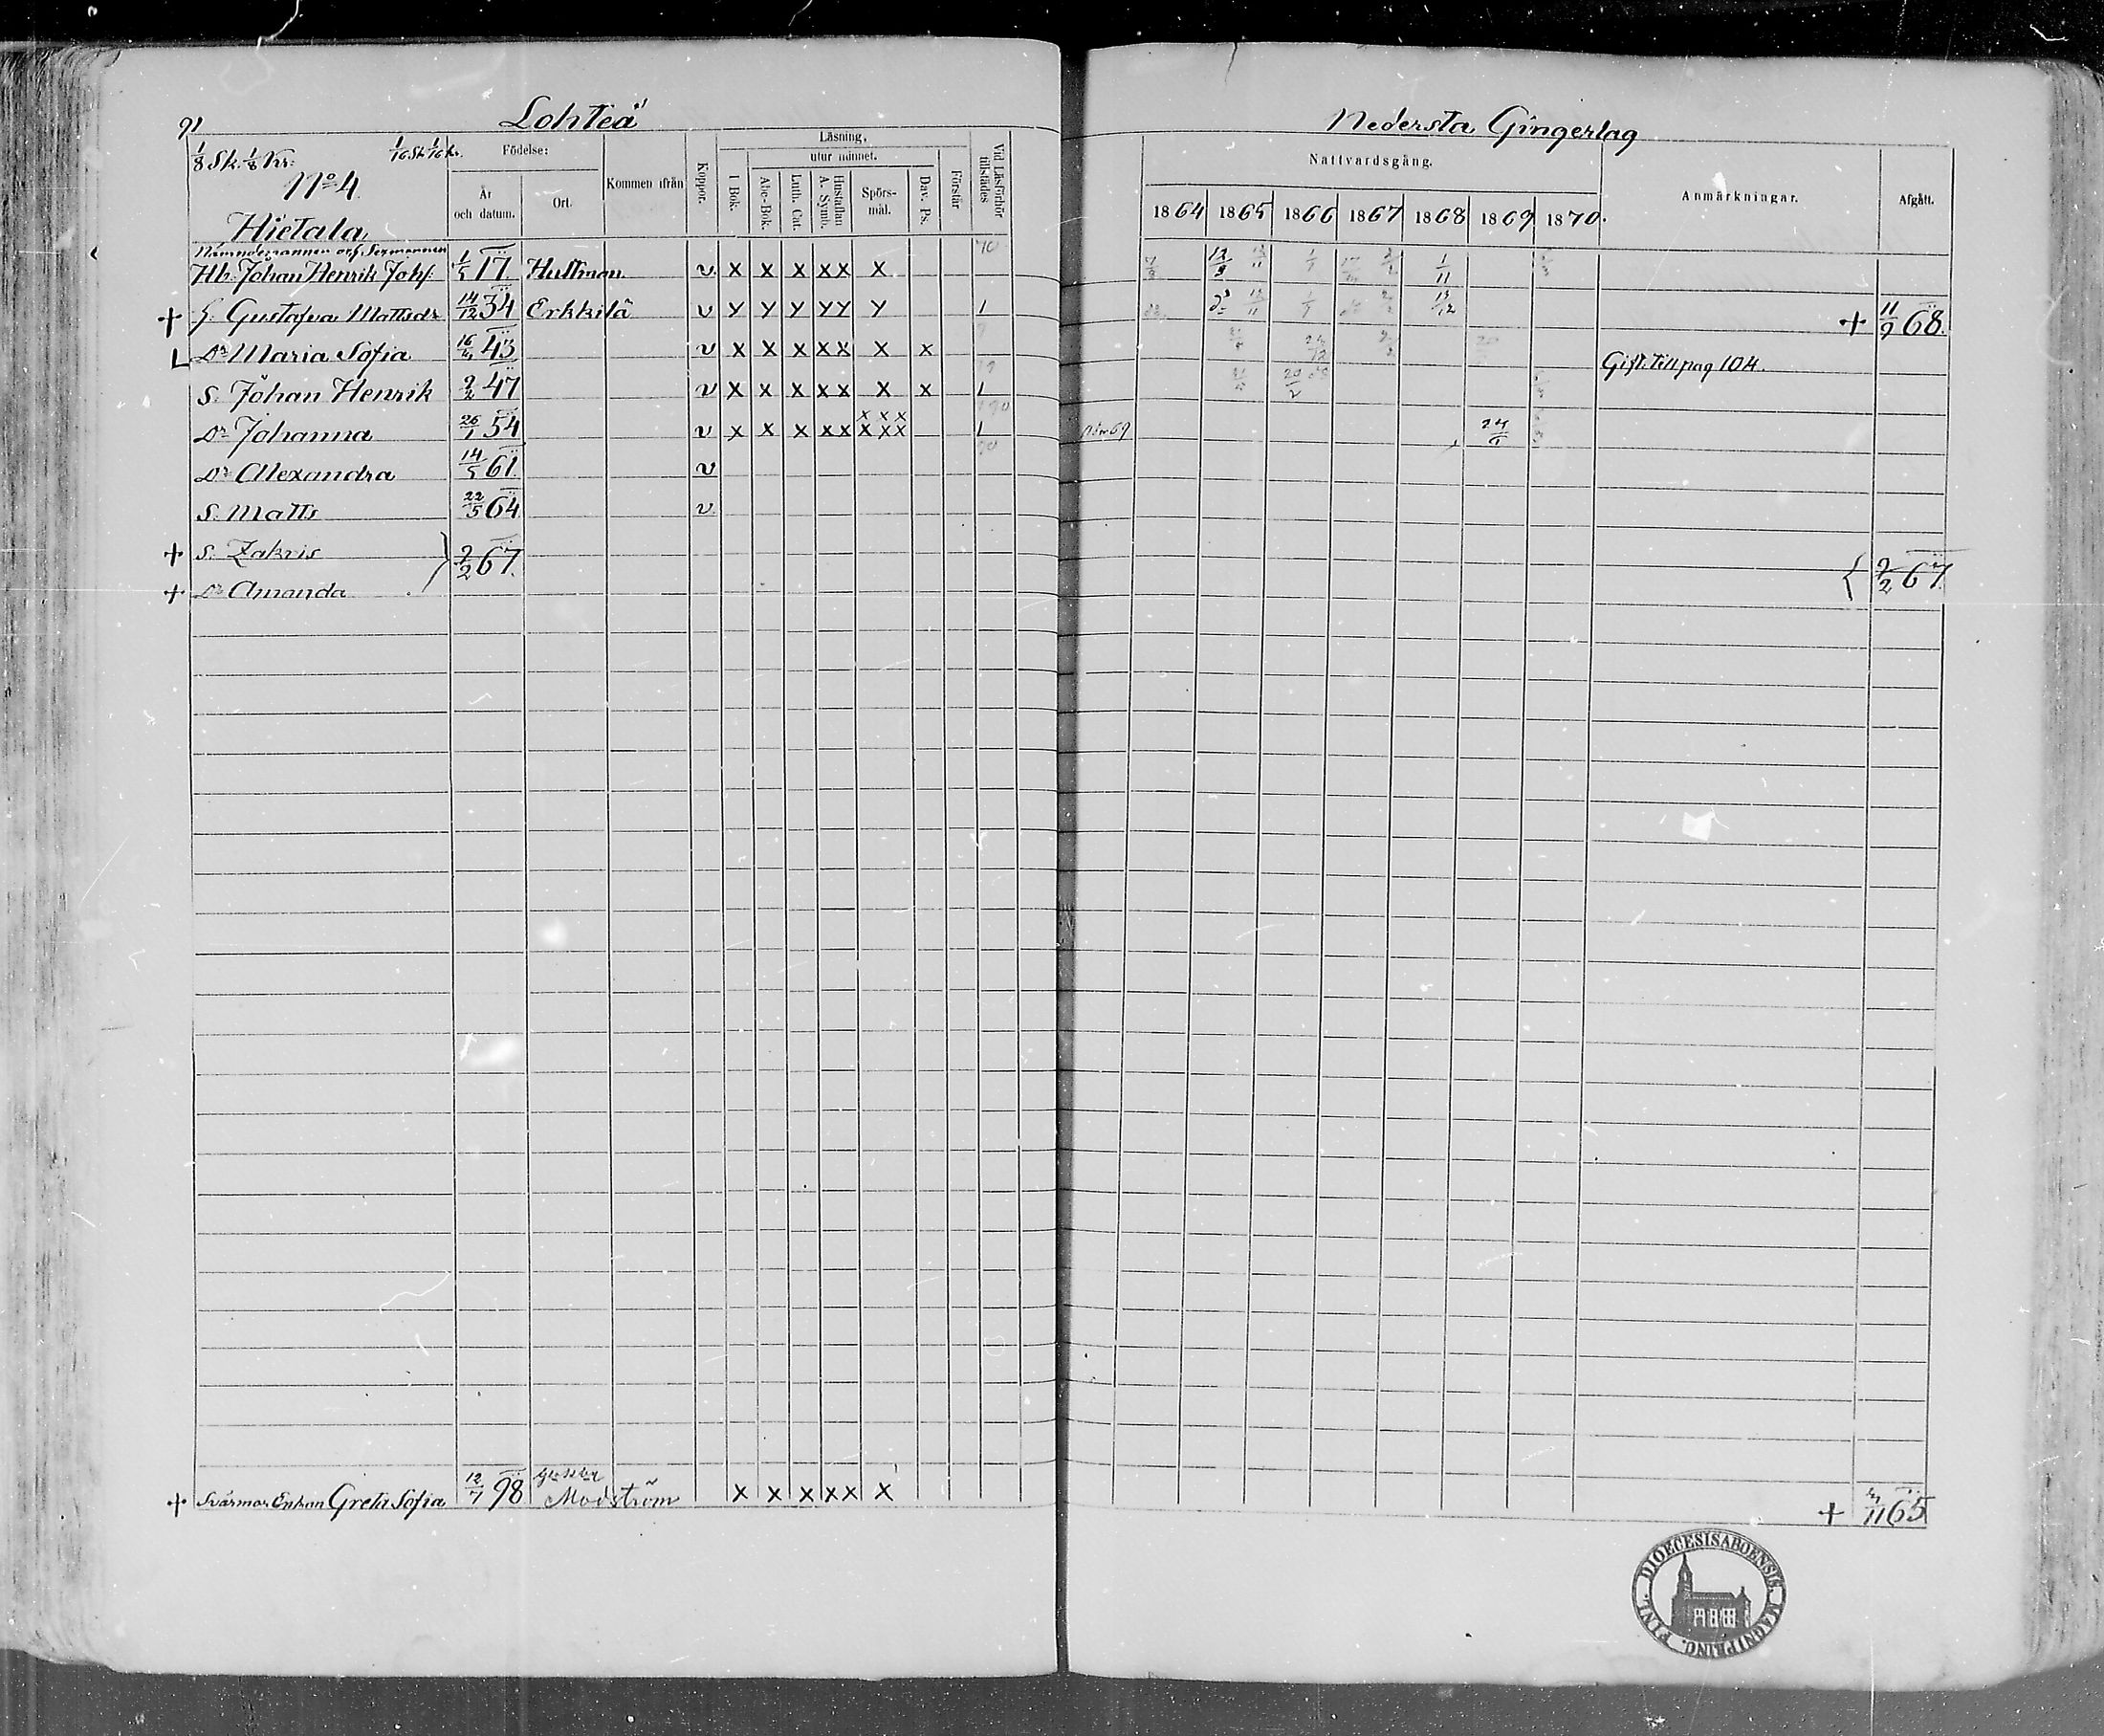 91 Lohteå
1/8 Sk. 1/8 Kr. 1/16 Sk 1/16 Kr.
No 4
Hietala
Födelse:
År och datum.
Ort.
Kommen ifrån
Koppor.
Läsning,
utur minnet.
I Bok.
Abc-Bok.
Luth. Cat.
Hustaflan A. Symb.
Spörsmål.
Dav. Ps.
Förstår
Vid Läsförhör tillstädes
Nämndemannen och Sexmannen
Hb. Johan Henrik Johs. 1/5 17 Hultman v x x x x x x
+ H. Gustafva Mattsdr 14/12 34 Erkkilä v y y y y y y 1
L Dr Maria Sofia 43 v x x x x x x x
S. Johan Henrik 9/2 47 v x x x x x x x 1
Dr Johanna 26/1 54 v x x x x x x x x x x x 1
Dr Alexandra 14/5 61. v
S. Matts 22/5 64 v
+ S. Zakris } 2/2 67.
+ Dr Amanda
+ Svärmor Enkan Greta Sofia 12/7 98 Modström x x x x x x
Nedersta Gingerlag
Nattvardsgång.
1864 1865 1866 1867 1868 1869 1870.
Anmärkningar.
Afgått.
12/3 1/11
+ 11/9 68.
Gift. till pag 104.
69 24/6
{ 2/2 67.
+ 11 65
DIOECESIS ABOENSIS. MAGNI PRINC. FINL.